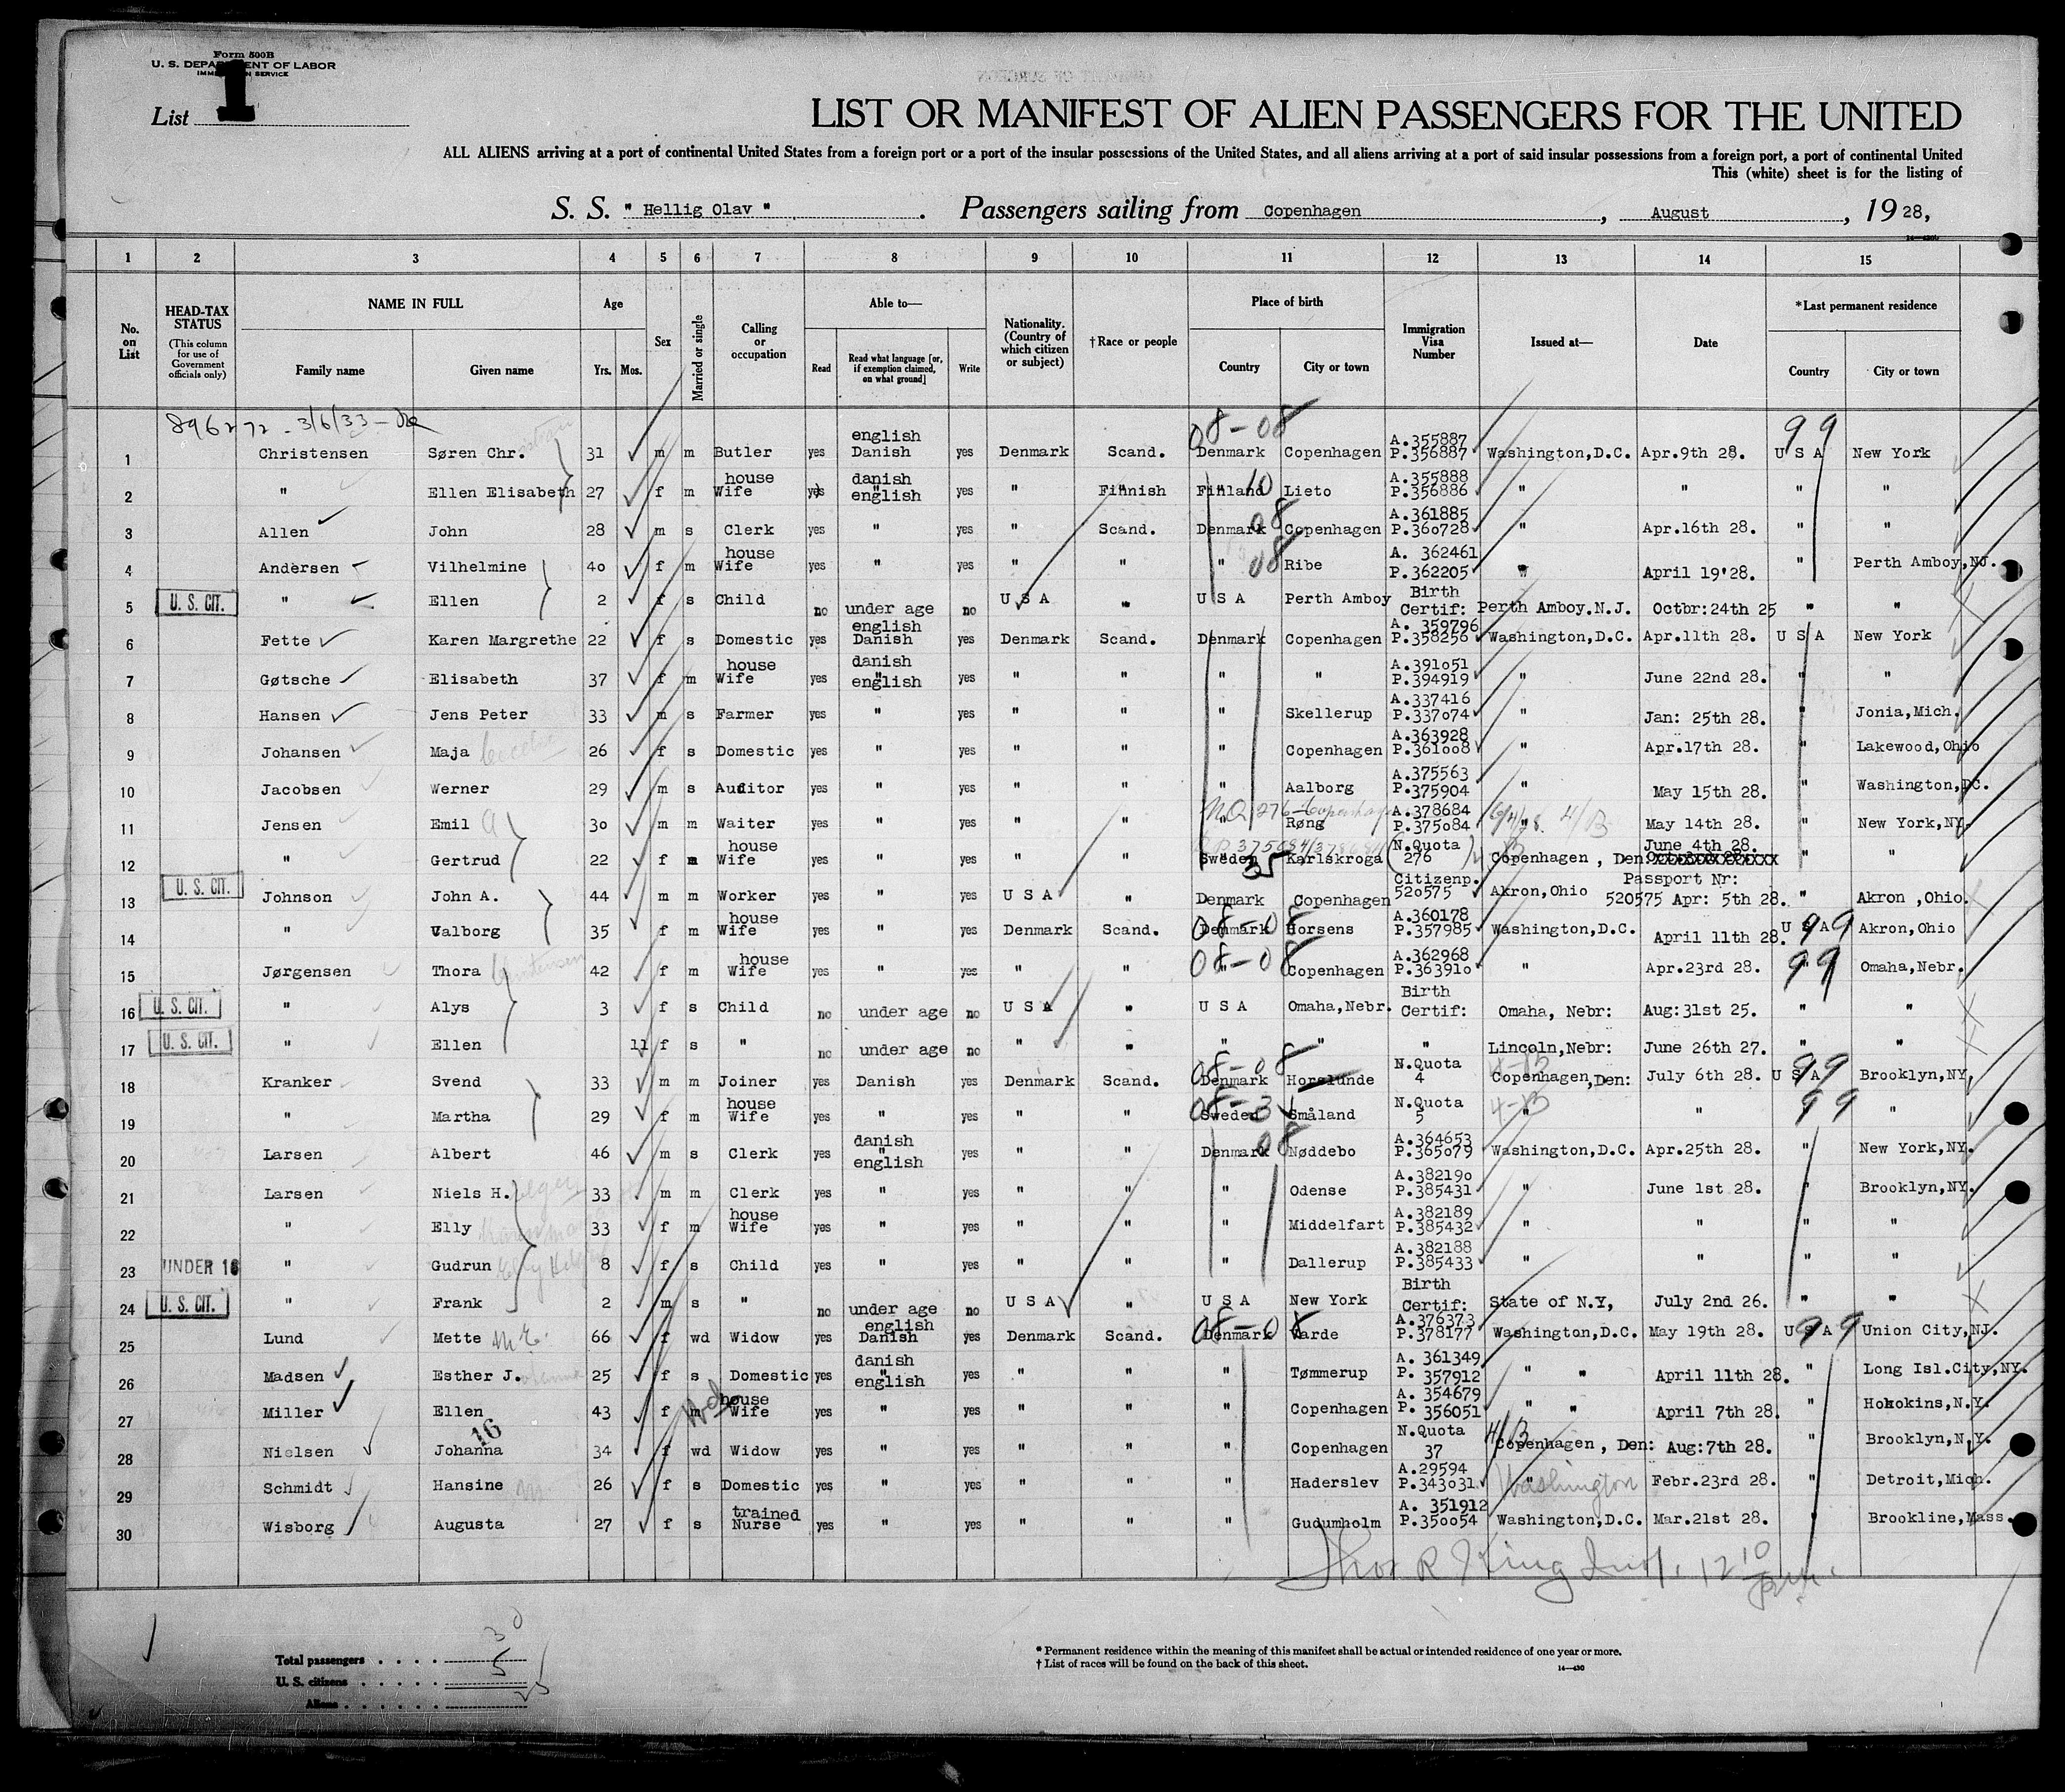 Form 500B
U. S. DEPARTMENT OF LABOR
IMMIGRATION SERVICE
List 1
LIST OR MANIFEST OF ALIEN PASSENGERS FOR THE UNITED
ALL ALIENS arriving at a port of continental United States from a foreign port or a port of the insular possessions of the United States, and all aliens arriving at a port of said insular possessions from a foreign port, a port of continental United
This (white) sheet is for the listing of
S. S. " Hellig Olav " . Passengers sailing from Copenhagen , August , 19 28,
1 2 3 4 5 6 7 8 9 10 11 12 13 14 15
No. on List
HEAD-TAX STATUS (This column for use of Government officials only)
NAME IN FULL Family name Given name
Age Yrs. Mos.
Sex
Married or single
Calling or occupation
Able to— Read Read what language [or, if exemption claimed, on what ground] Write
Nationality. (Country of which citizen or subject)
†Race or people
Place of birth Country City or town
Immigration Visa Number
Issued at—
Date
*Last permanent residence Country City or town
896272 - 3/6/33 - 08-08 99
1 Christensen Søren Chr. 31 m m Butler yes english Danish yes Denmark Scand. Denmark Copenhagen A.355887 P.356887 Washington,D.C. Apr.9th 28. U S A New York
2 " Ellen Elisabeth 27 f m house Wife yes danish " english yes " Finnish Finland 10 Lieto A.355888 P.356886 " " " "
3 Allen John 28 m s Clerk yes " yes " Scand. Denmark 08 Copenhagen A.361885 P.360728 " Apr.16th 28. " "
4 Andersen Vilhelmine 40 f m house Wife yes " yes " " " 08 Ribe A. 362461 P.362205 " April 19'28. " Perth Amboy,NJ.
5 U. S. CIT. " Ellen 2 f s Child no under age no U S A " U S A Perth Amboy Birth Certif: Perth Amboy.N.J. Octbr:24th 25 " "
6 Fette Karen Margrethe 22 f s Domestic yes english Danish yes Denmark Scand. Denmark Copenhagen A. 359796 P.358256 Washington,D.C. Apr.11th 28. U S A New York
7 Gøtsche Elisabeth 37 f m house Wife yes danish " english yes " " " " A.391051 P.394919 " June 22nd 28. " "
8 Hansen Jens Peter 33 m s Farmer yes " yes " " " Skellerup A.337416 P.337074 " Jan: 25th 28. " Jonia,Mich.
9 Johansen Maja 26 f s Domestic yes " yes " " " Copenhagen A.363928 P.361008 " Apr.17th 28. " Lakewood,Ohio
10 Jacobsen Werner 29 m s Auditor yes " yes " " " Aalborg A.375563 P.375904 " May 15th 28. " Washington,DC.
NQ 276 Copenhagen 6/4/28. 4/B
11 Jensen Emil A 30 m m Waiter yes " yes " " " Røng A.378684 P.375084 " May 14th 28. " New York,NY.
12 " Gertrud 22 f m house Wife yes " yes " " Sweden 35 Karlskroga N.Quota 276 Copenhagen , Den: June 4th 28. " "
13 U. S. CIT. Johnson John A. 44 m m Worker yes " yes U S A " Denmark Copenhagen Citizenp. 520575 Akron,Ohio Passport Nr: 520575 Apr: 5th 28. " Akron ,Ohio.
14 " Valborg 35 f m house Wife yes " yes Denmark Scand. Denmark 08-08 Horsens A.360178 P.357985 Washington,D.C. April 11th 28. U S A 99 Akron,Ohio
15 Jørgensen Thora Christensen 42 f m house Wife yes " yes " " " 08-08 Copenhagen A.362968 P.363910 " Apr.23rd 28. " 99 Omaha,Nebr.
16 U. S. CIT. " Alys 3 f s Child no under age no U S A " U S A Omaha,Nebr. Birth Certif: Omaha, Nebr: Aug:31st 25. " "
17 U. S. CIT. " Ellen 11 f s " no under age no " " " " " Lincoln,Nebr: June 26th 27. " "
18 Kranker Svend 33 m m Joiner yes Danish yes Denmark Scand. Denmark 08-08 Horslunde N.Quota 4 4-B Copenhagen,Den: July 6th 28. U S A 99 Brooklyn,NY,
19 " Martha 29 f m house Wife yes " yes " " Sweden 08-3 Småland N.Quota 5 4-B " " 99 "
20 Larsen Albert 46 m s Clerk yes danish " english yes " " Denmark 08 Nøddebo A.364653 P.365079 Washington,D.C. Apr.25th 28. " New York,NY.
21 Larsen Niels H. 33 m m Clerk yes " yes " " " Odense A.382190 P.385431 " June 1st 28. " Brooklyn,NY.
22 " Elly 33 f m house Wife yes " yes " " " Middelfart A.382189 P.385432 " " " "
23 UNDER 16 " Gudrun 8 f s Child yes " yes " " " Dallerup A.382188 P.385433 " " " "
24 U. S. CIT. " Frank 2 m s " no under age no U S A " U S A New York Birth Certif: State of N.Y, July 2nd 26. " "
25 Lund Mette 66 f wd Widow yes english Danish yes Denmark Scand. Denmark 08-08 Varde A.376373 P.378177 Washington,D.C. May 19th 28. U S A 99 Union City,NJ.
26 Madsen Esther J. 25 f s Domestic yes danish " english yes " " " Tømmerup A. 361349 P. 357912 " " April 11th 28. " Long Isl.City,NY.
27 Miller Ellen 43 f m Wd house Wife yes " yes " " " Copenhagen A. 354679 P. 356051 " " April 7th 28. " Hohokins,N.Y.
28 Nielsen Johanna 16 34 f wd Widow yes " yes " " " Copenhagen N.Quota 37 4/B Copenhagen , Den: Aug:7th 28. " Brooklyn,N.Y.
29 Schmidt Hansine M. 26 f s Domestic yes " yes " " " Haderslev A.29594 P.343031 " Washington Febr.23rd 28. " Detroit,Mich.
30 Wisborg Augusta 27 f s trained Nurse yes " yes " " " Gudumholm A. 351912 P.350054 Washington,D.C. Mar.21st 28. " Brookline,Mass.
Thos R King Insp. 12 10
Total passengers . . . . 30
U. S. citizens . . . . . 5
Aliens . . . . . . 25
* Permanent residence within the meaning of this manifest shall be actual or intended residence of one year or more.
† List of races will be found on the back of this sheet.
14—430